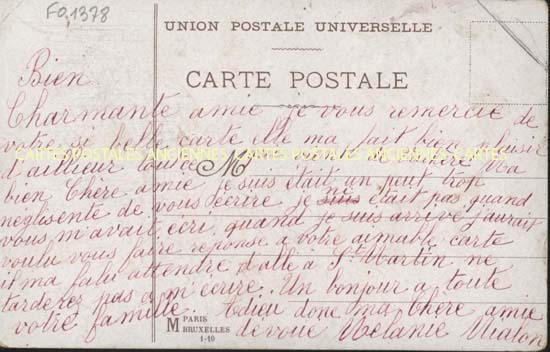 FO,1378
UNION POSTALE UNIVERSELLE
CARTE POSTALE
Bien
Charmante amie je vous remercie de
votre si belle carte elle ma fait bien plaisir
CARTES POSTALES ANCIENNES CARTES POSTALES ANCIENNES CARTES
d'ailleur toute va
M
bien Chère amie je suis était un peut trop
neglisente de vous écrire je suis ni était pas quand
vous m'avait écri quand je suis arrivé j'aurait
voulu vous faire réponse a votre aimable carte
il ma falu attendre d'allé a St Martin ne
tarderez pas a m'écrire. Un bonjour a toute
votre famille. Adieu donc ma chère amie
M PARIS
BRUXELLES
1-19
dévoué Mélanie